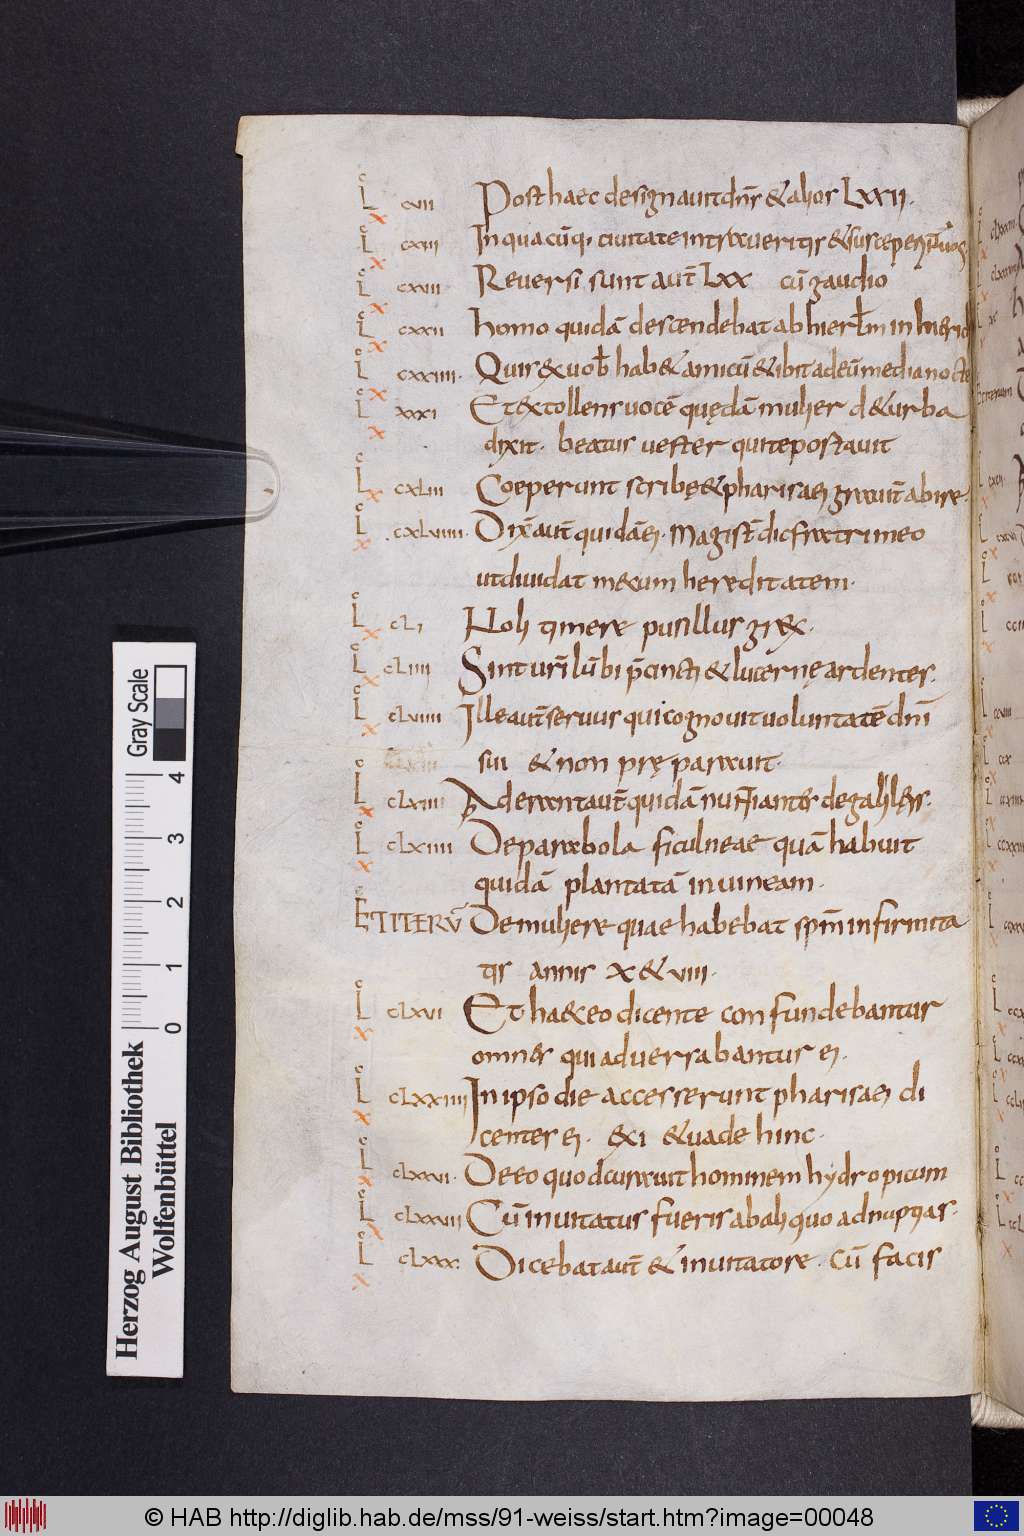 L cvii Post haec designauit dn̄s & alios Lxxii.
L cxiii In qua cūq; ciuitate intraueritis & susceperint uos
L cxviii Reuersi sunt aut̄ Lxx cū gaudio
L cxxii homo quidā descendebat ab hierł̄m in hieric
L cxxiiii. Quis ex uob̄ hab& amicū & ibit ad eū media nocte
L xxxi Et extollens uocē quędā mulier d& urba
dixit. beatus uester qui te postauit
L cxLiii Coeperunt scribę & pharisaei grauit abire.
L cxLviiii. Dix̄ aut̄ quidā ei. Magist̄ dic fratri meo
ut diuidat mecum hereditatem.
L cLi Noli timere pusillus grex.
L cLiiii Sint ur̄i lūbi p̄cincti & lucernę ardentes.
L cLviiii Ille aut̄ seruus qui cognouit uoluntatē dn̄i
sui & non prę parauit.
L cLxiii Aderant aut̄ quidā nuntiantes de galileis.
L cLxiiii De parabola ficulneae quā habuit
quidā plantatā in uineam.
ET ITERŪ De muliere quae habebat sp̄m infirmita
tis annis x & viii.
L cLxvi Et haec eo dicente confundebantur
omnes qui aduersabantur ei.
L cLxxiiii In ipso die accesserunt pharisaei di
centes ei. exi & uade hinc.
L cLxxvi. De eo quod curauit hominem hydropicum
L cLxxvii Cū inuitatus fueris ab aliquo ad nuptias.
L cLxxx. Dicebat aut̄ & inuitatore. Cū facis
Herzog August Bibliothek
Wolfenbüttel
Gray Scale
0 1 2 3 4
© HAB http://diglib.hab.de/mss/91-weiss/start.htm?image=00048